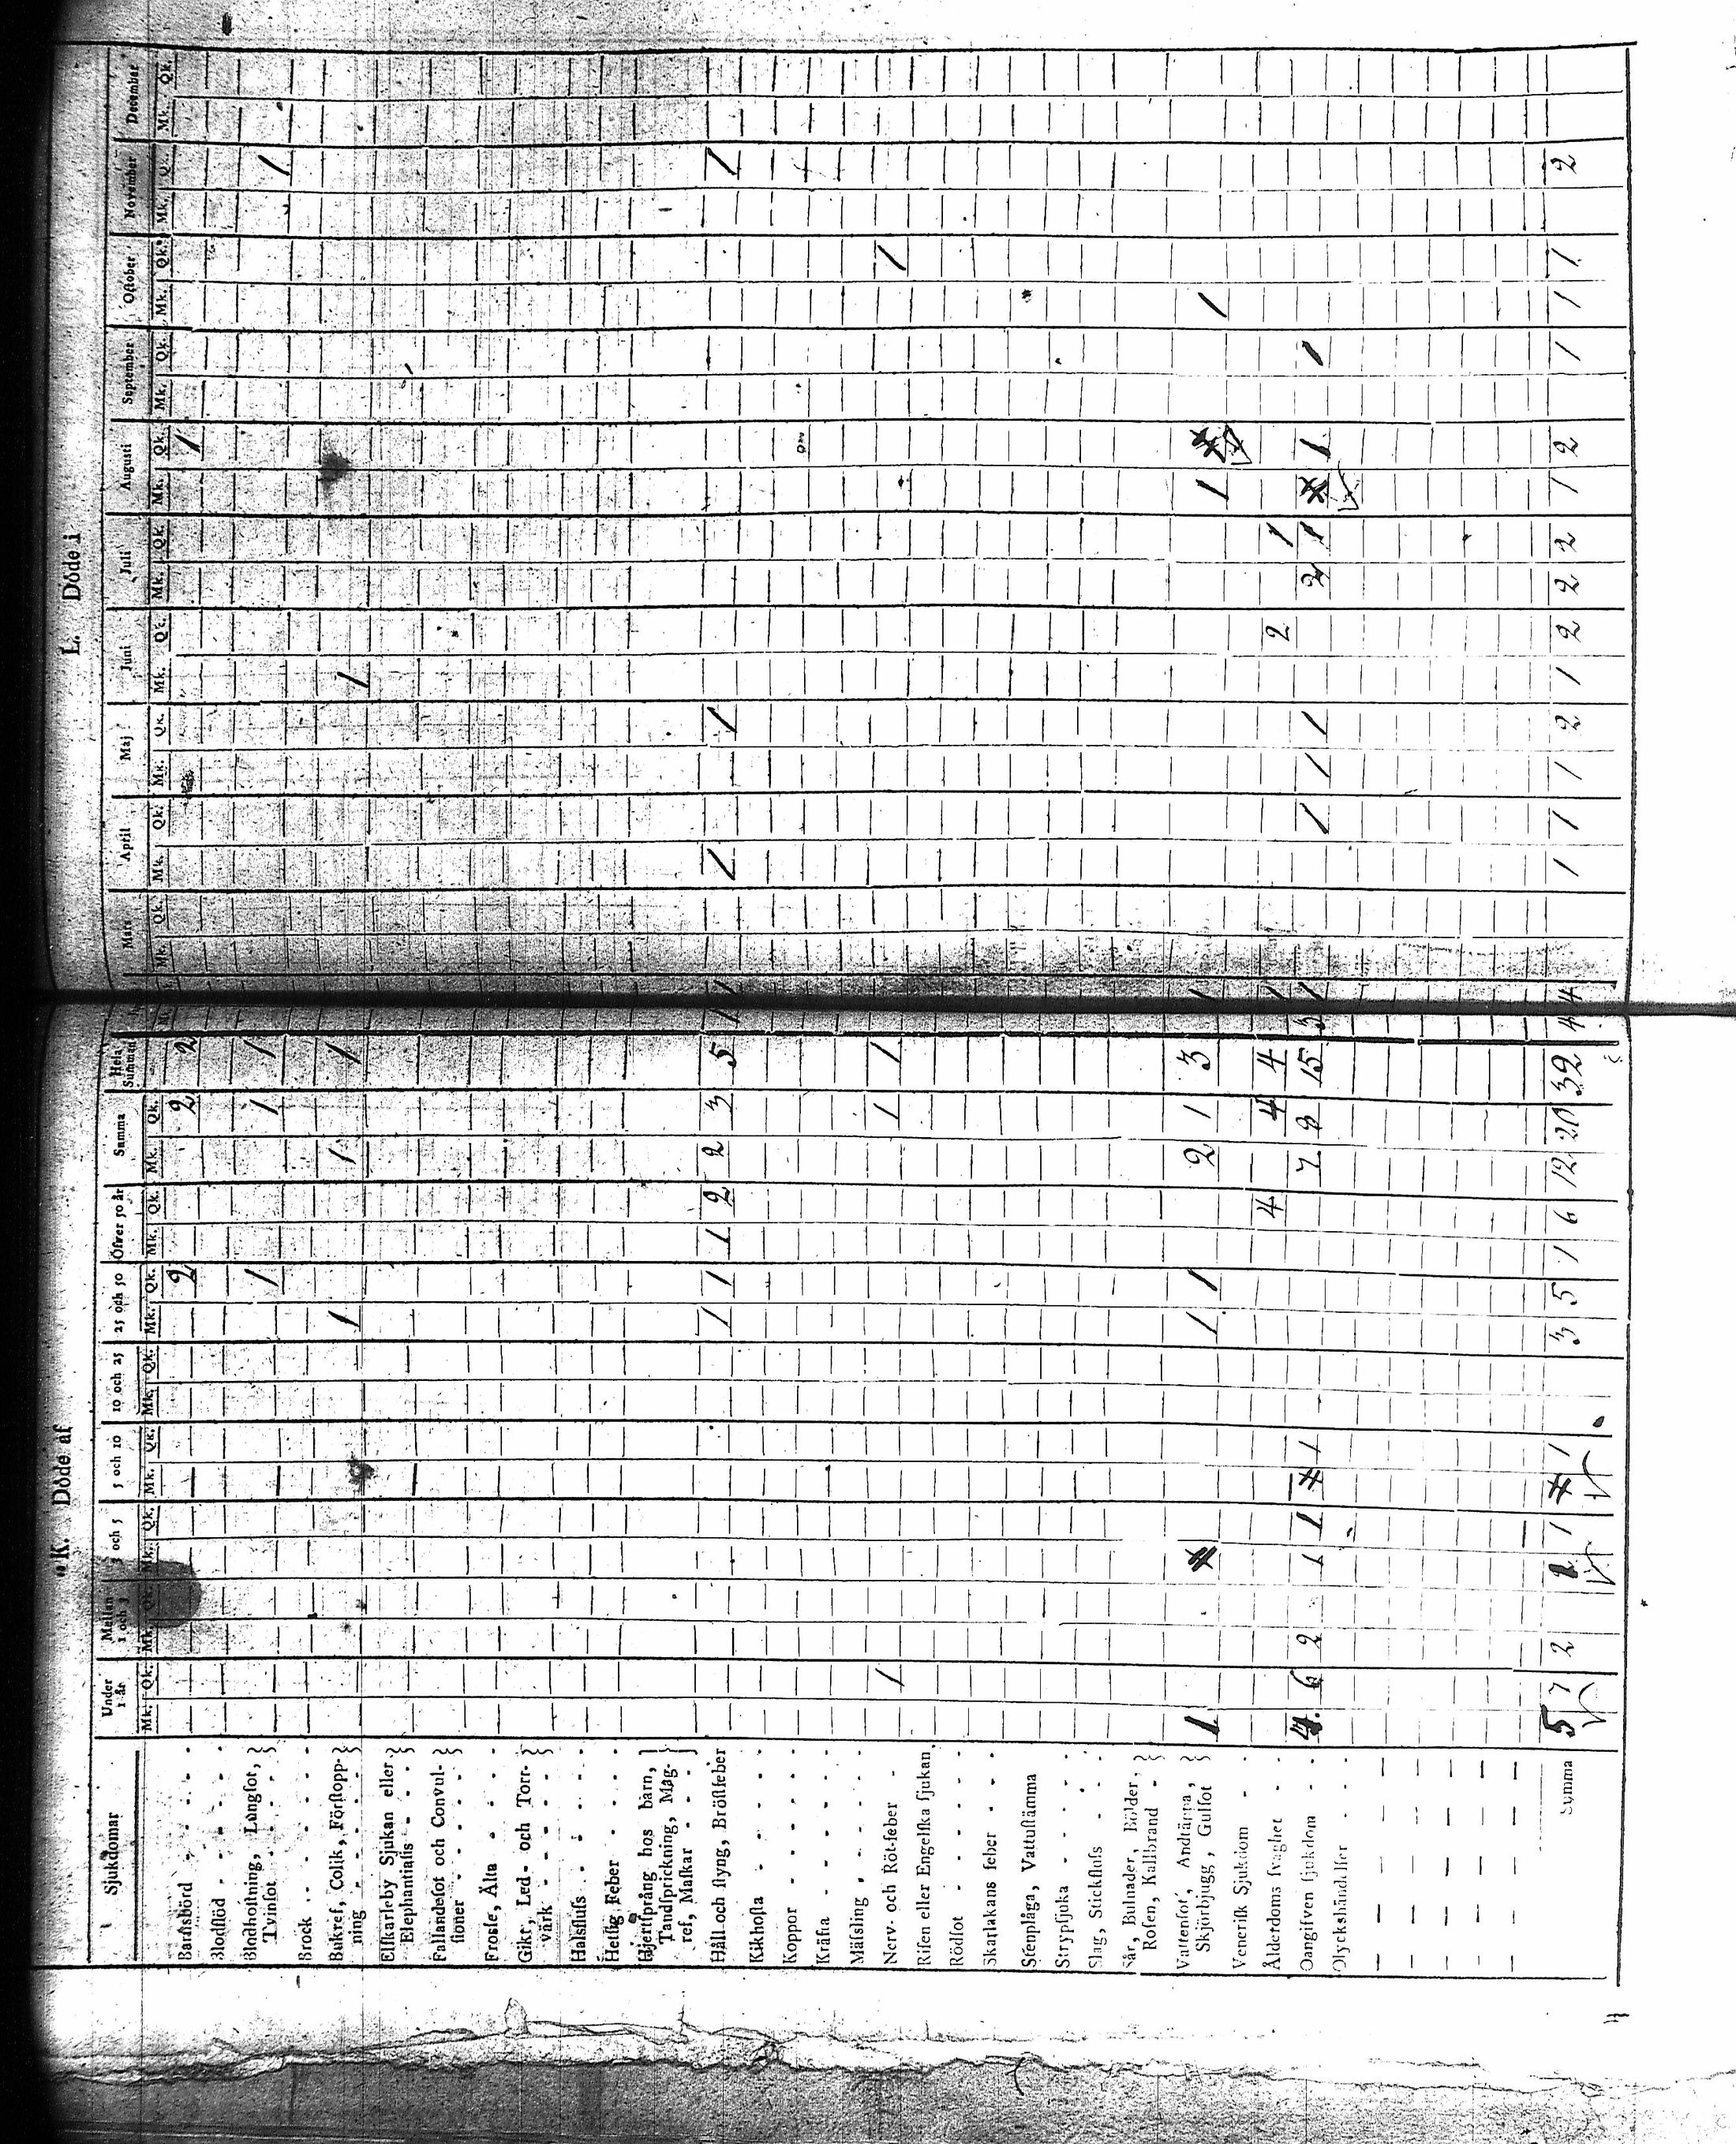 K. Döde af
Sjukdomar | Under 1 år | Mellan 1 och 3 | 3 och 5 | 5 och 10 | 10 och 25 | 25 och 50 | Öfver 50 år | Samma | Hela Summan
Mk. Qk. Mk. Qk. Mk. Qk. Mk. Qk. Mk. Qk. Mk. Qk. Mk. Qk. Mk. Qk.
Barnsbörd 2 2 2
Blodflöd
Blodhostning, Lungsot, Tvinsot 1 1 1
Brock
Bukref, Colik, Förstoppning 1 1 1
Elskarleby Sjukan eller Elephantiasis
Fallandesot och Convulsioner
Frossa, Älta
Gikt, Led- och Torrvärk
Halsfluss
Hetsig Feber
Hjertsprång hos barn, Tandsprickning, Magref, Maskar
Håll och styng, Bröstfeber 1 1 1 2 2 3 5
Kikhosta
Koppor
Kräfta
Mässling
Nerv- och Röt-feber 1 1 1
Risen eller Engelska sjukan
Rödsot
Skarlakans feber
Stenplåga, Vattustämma
Strypsjuka
Slag, Stickfluss
Sår, Bulnader, Bölder, Rosen, Kallbrand
Vattensot, Andtäppa, Skjörbjugg, Gulsot 1 1 1 2 1 3
Venerisk Sjukdom
Ålderdoms svaghet 4 4 4
Oangifven sjukdom 4 6 2 1 1 1 7 8 15
Olyckshändelser
Summa 5 7 2 1 1 3 5 1 6 12 20 32
L. Döde i
Mars | April | Maj | Juni | Juli | Augusti | September | October | November | December
Mk. Qk. Mk. Qk. Mk. Qk. Mk. Qk. Mk. Qk. Mk. Qk. Mk. Qk. Mk. Qk. Mk. Qk. Mk. Qk.
1
1
1
1 1 1 1 1
1
1 1 1
1 2 1
5 1 1 1 1 2 1 1 1
4 4 1 1 1 2 1 2 2 2 1 2 1 1 1 2